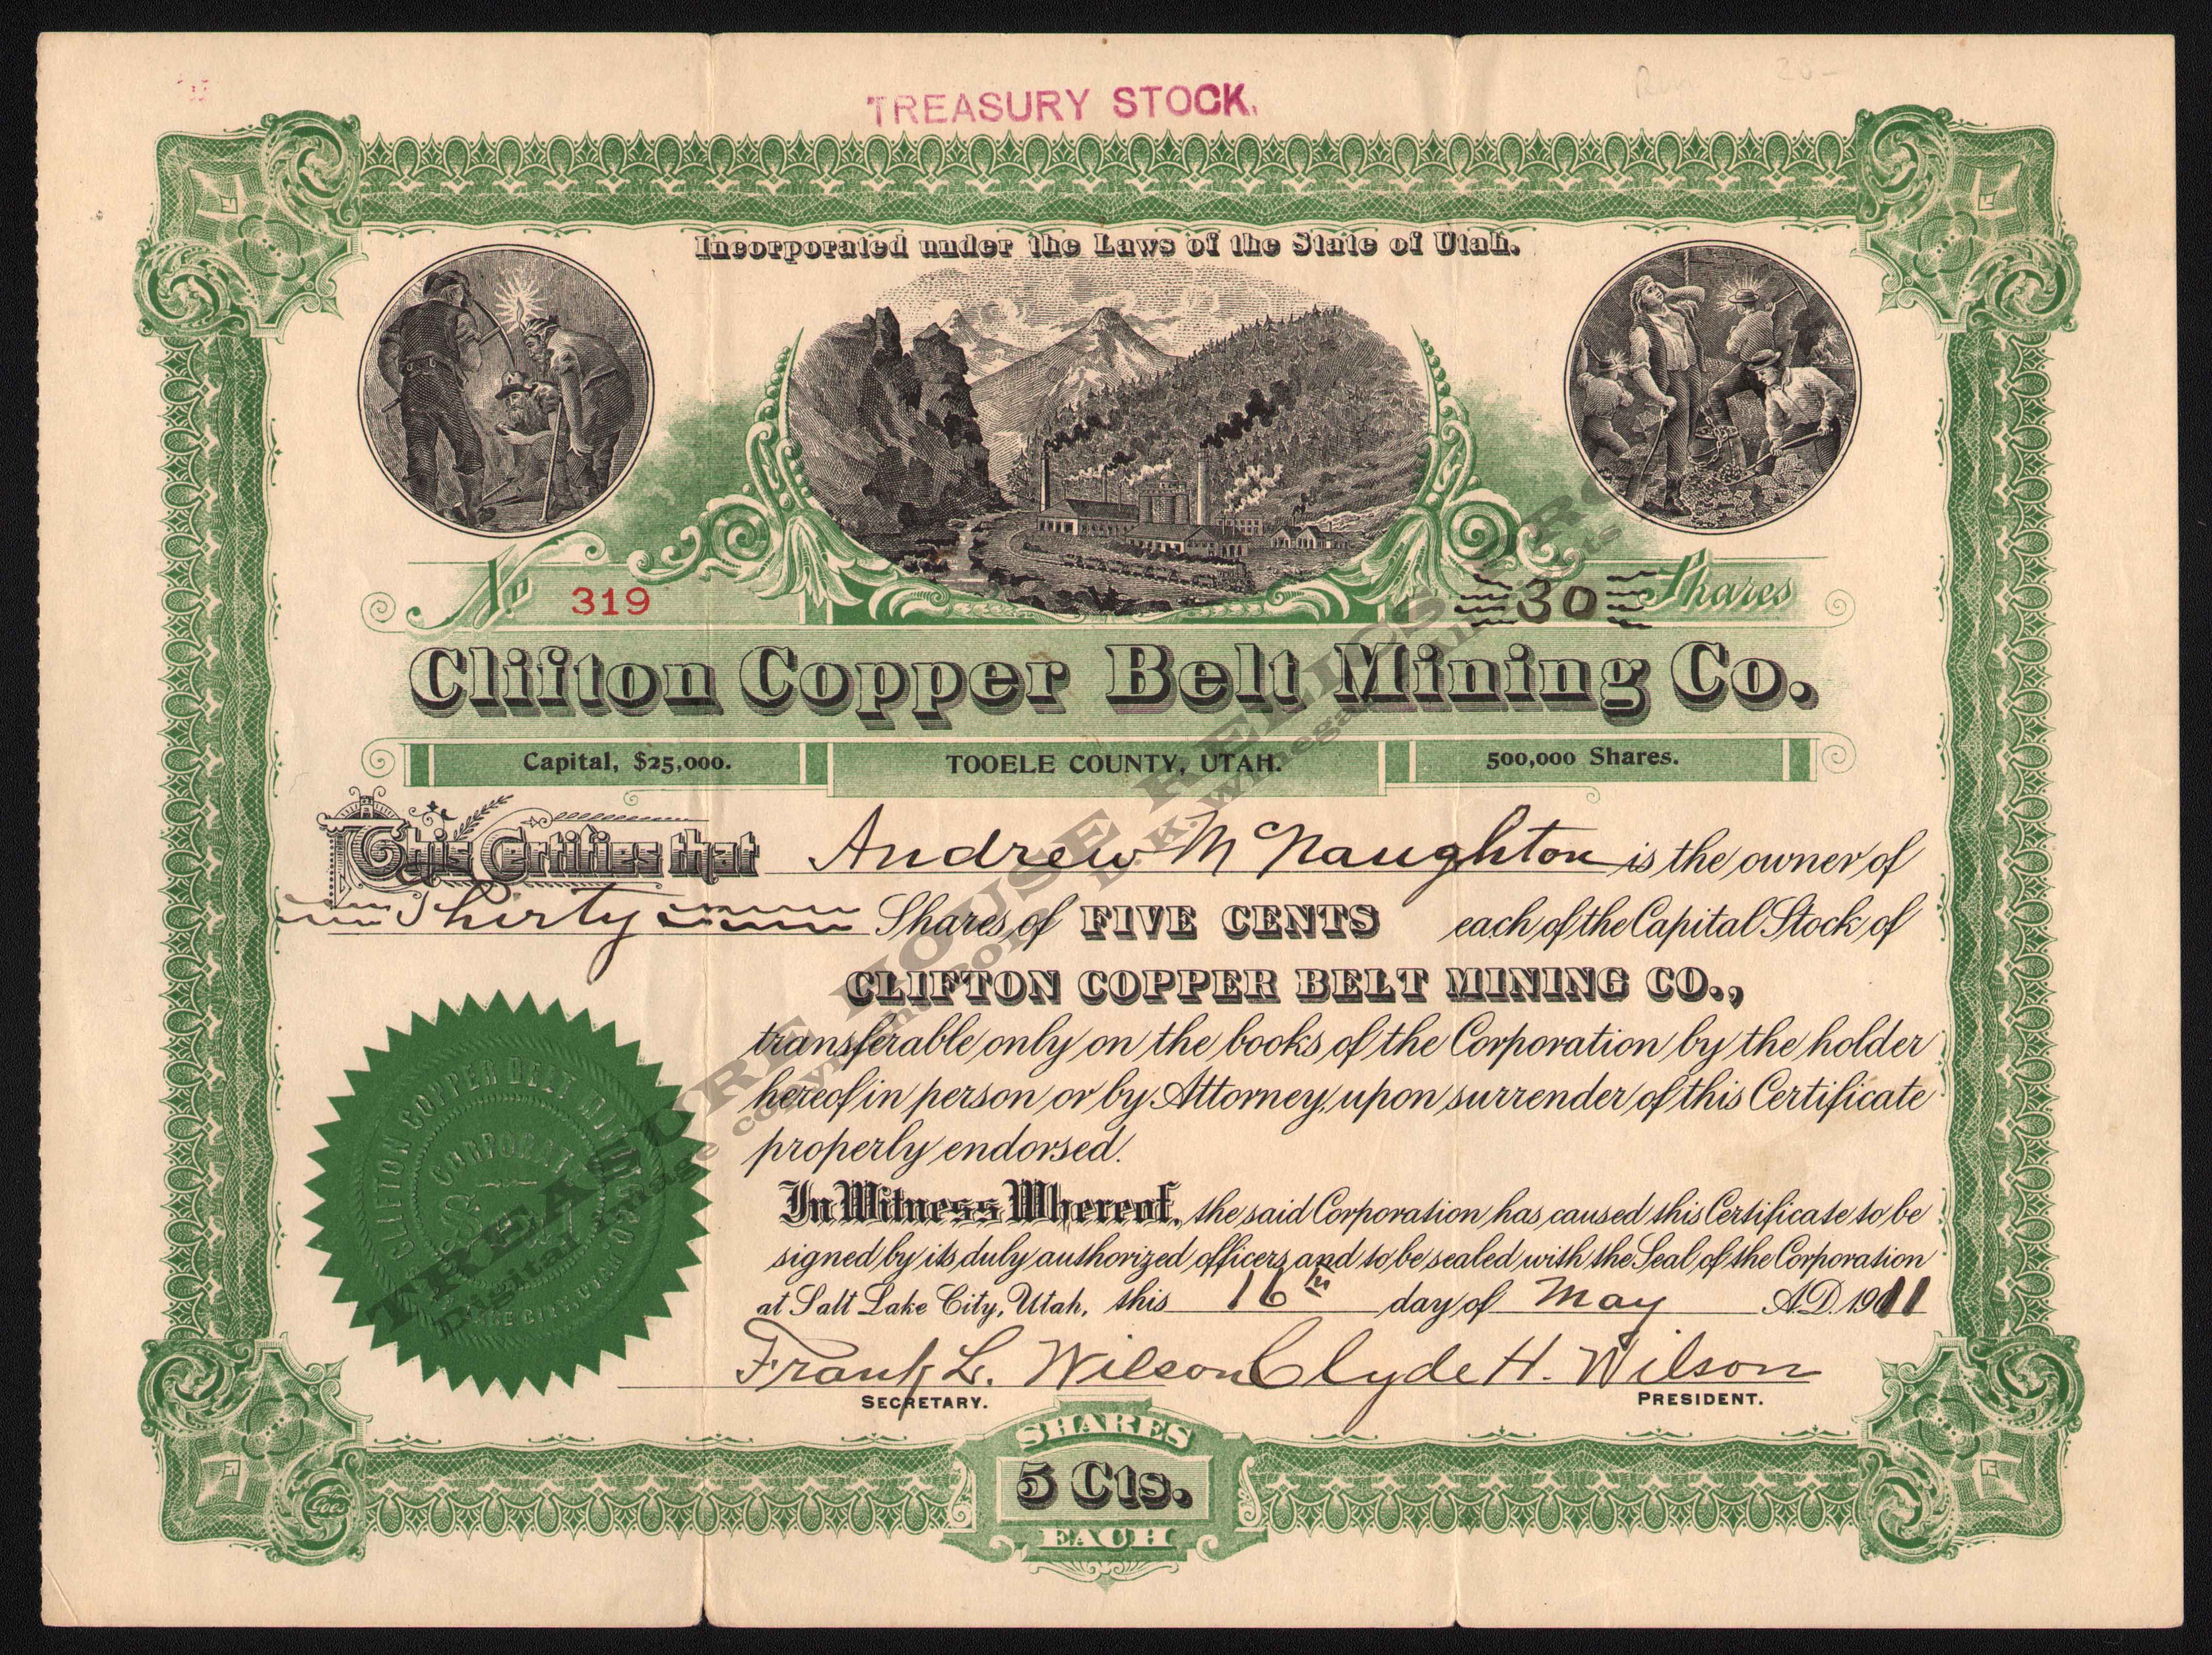 TREASURY STOCK.
Incorporated under the Laws of the State of Utah.
No 319
30 Shares
Clifton Copper Belt Mining Co.
Capital, $25,000.
TOOELE COUNTY, UTAH.
500,000 Shares.
This Certifies that Andrew McNaughton is the owner of
Thirty Shares of FIVE CENTS each of the Capital Stock of
CLIFTON COPPER BELT MINING CO.,
transferable only on the books of the Corporation by the holder
hereof in person or by Attorney, upon surrender of this Certificate
properly endorsed.
In Witness Whereof, the said Corporation has caused this Certificate to be
signed by its duly authorized officers and to be sealed with the Seal of the Corporation
at Salt Lake City, Utah, this 16th day of May A.D. 1911
Frank L. Wilson Clyde H. Wilson
SECRETARY.
PRESIDENT.
CLIFTON COPPER BELT MINING CO
CORPORATE
SHARES
5 Cts.
EACH
Goes
TREASURE HOUSE RELICS
Digital Image copyright